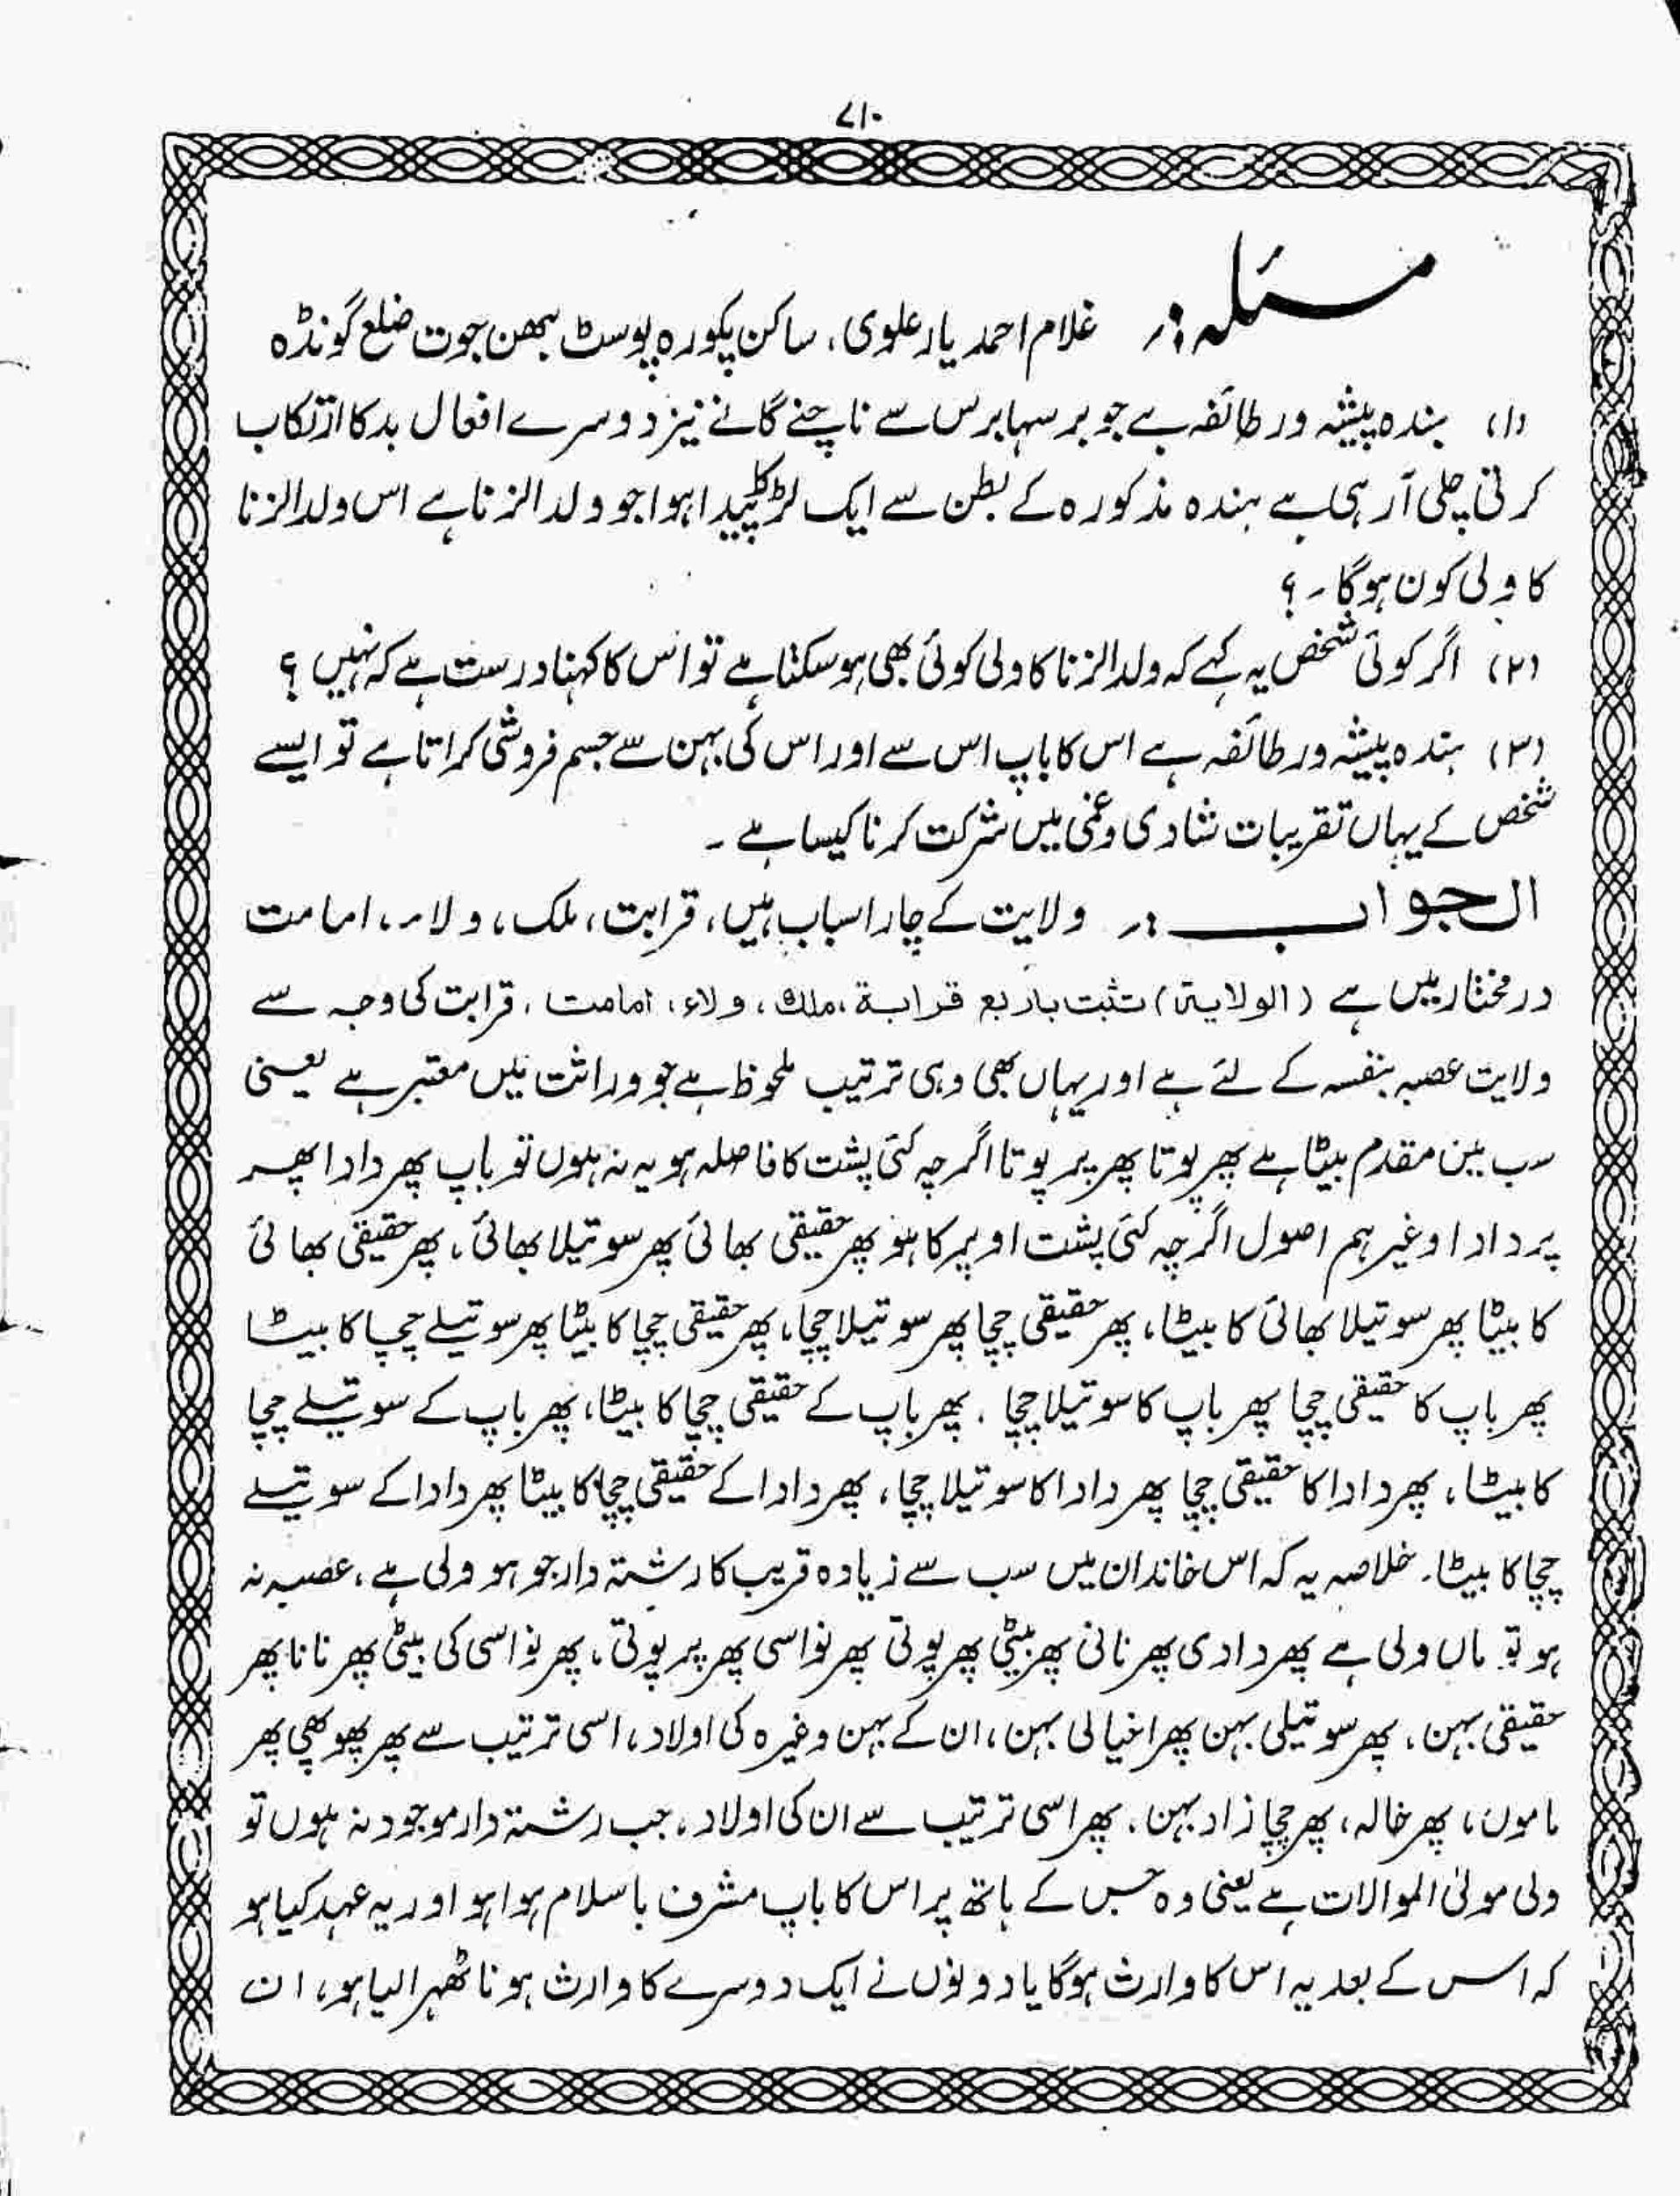 ۷۱۰
مسئلہ:۔ غلام احمد یار علوی، ساکن پکورہ پوسٹ بھمن جوت ضلع گونڈہ
(۱) ہندہ پیشہ ور طائفہ ہے جو برسہا برس سے ناچنے گانے نیز دوسرے افعال بد کا ارتکاب
کرتی چلی آرہی ہے ہندہ مذکورہ کے بطن سے ایک لڑکا پیدا ہوا جو ولد الزنا ہے اس ولد الزنا
کا ولی کون ہوگا ۔ ؟
(۲) اگر کوئی شخص یہ کہے کہ ولد الزنا کا ولی کوئی بھی ہوسکتا ہے تو اس کا کہنا درست ہے کہ نہیں ؟
(۳) ہندہ پیشہ ور طائفہ ہے اس کا باپ اس سے اور اس کی بہن سے جسم فروشی کراتا ہے تو ایسے
شخص کے یہاں تقریبات شادی وغمی میں شرکت کرنا کیسا ہے ۔
الجواب :۔ ولایت کے چار اسباب ہیں، قرابت، ملک، ولاء، امامت
درمختار میں ہے (الولایۃ) تثبت باربع قرابۃ، ملك، ولاء، امامت، قرابت کی وجہ سے
ولایت عصبہ بنفسہ کے لئے ہے اور یہاں بھی وہی ترتیب ملحوظ ہے جو وراثت میں معتبر ہے یعنی
سب میں مقدم بیٹا ہے پھر پوتا پھر پرپوتا اگرچہ کئی پشت کا فاصلہ ہو یہ نہ ہوں تو باپ پھر دادا پھر
پردادا وغیرہم اصول اگرچہ کئی پشت اوپر کا ہو پھر حقیقی بھائی پھر سوتیلا بھائی، پھر حقیقی بھائی
کا بیٹا پھر سوتیلا بھائی کا بیٹا، پھر حقیقی چچا پھر سوتیلا چچا، پھر حقیقی چچا کا بیٹا پھر سوتیلے چچا کا بیٹا
پھر باپ کا حقیقی چچا پھر باپ کا سوتیلا چچا ۔ پھر باپ کے حقیقی چچا کا بیٹا، پھر باپ کے سوتیلے چچا
کا بیٹا، پھر دادا کا حقیقی چچا پھر دادا کا سوتیلا چچا، پھر دادا کے حقیقی چچا کا بیٹا پھر دادا کے سوتیلے
چچا کا بیٹا۔ خلاصہ یہ کہ اس خاندان میں سب سے زیادہ قریب کا رشتہ دار جو ہو ولی ہے، عصبہ نہ
ہو تو ماں ولی ہے پھر دادی پھر نانی پھر بیٹی پھر پوتی پھر نواسی پھر پرپوتی، پھر نواسی کی بیٹی پھر نانا پھر
حقیقی بہن، پھر سوتیلی بہن پھر اخیافی بہن، ان کے بہن وغیرہ کی اولاد، اسی ترتیب سے پھر پھوپھی پھر
ماموں، پھر خالہ، پھر چچا زاد بہن، پھر اسی ترتیب سے ان کی اولاد، جب رشتہ دار موجود نہ ہوں تو
ولی مولیٰ الموالات ہے یعنی وہ جس کے ہاتھ پر اس کا باپ مشرف باسلام ہوا ہو اور یہ عہد کیا ہو
کہ اس کے بعد یہ اس کا وارث ہوگا یا دونوں نے ایک دوسرے کا وارث ہونا ٹھہرا لیا ہو، ان